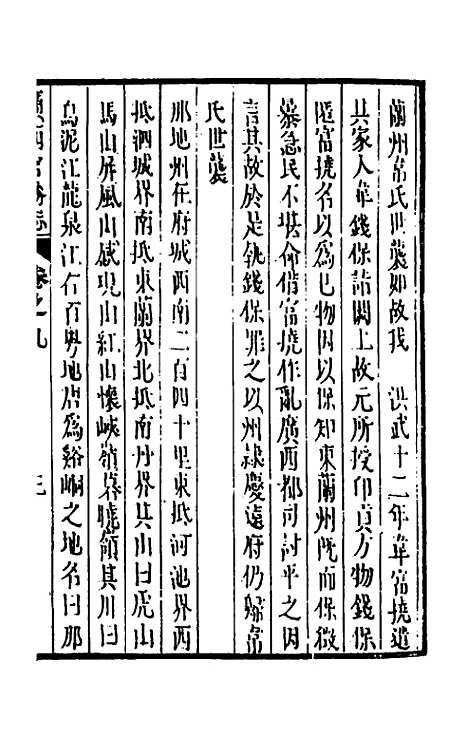 蘭州韋氏世襲如故我　洪武十二年韋富撓遣
其家人韋錢保詣闕上故元所授印貢方物錢保
匿富撓名以爲已物因以保知東蘭州旣而保徵
慕急民不堪命借富撓作亂廣西都司討平之因
言其故於是執錢保罪之以州隸慶遠府仍歸韋
氏世襲
那地州在府城西南二百四十里東抵河池界西
抵泗城界南抵東蘭界北抵南丹界其山曰虎山
馬山屏風山感現山紅山懷峽嶺暮曉嶺其川曰
烏泥江龍泉江右百粤地唐爲谿峒之地名曰那
廣西名勝志　卷之九　三